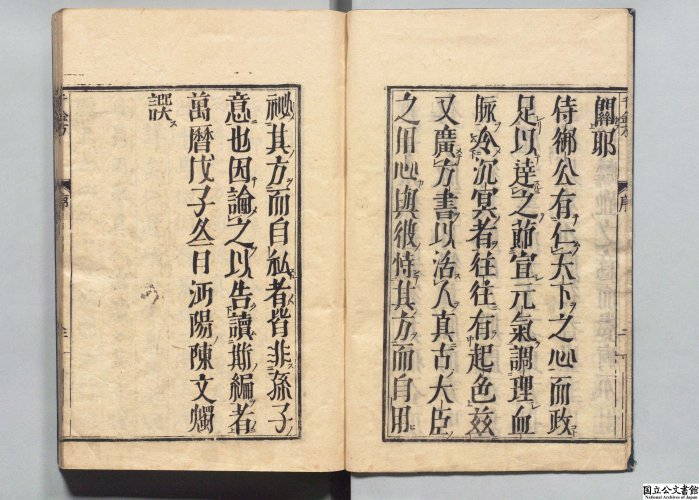 關耶
侍御公有仁天下之心而政
足以達之節宣元氣調理血
脉令沉冥者往往有起色茲
又廣方書以活人真古大臣
之用心與彼恃其方而自用
祕其方而自私者皆非孫子
意也因論之以告讀斯編者
萬曆戊子冬日沔陽陳文燭
譔
千金方
序
国立公文書館
National Archives of Japan